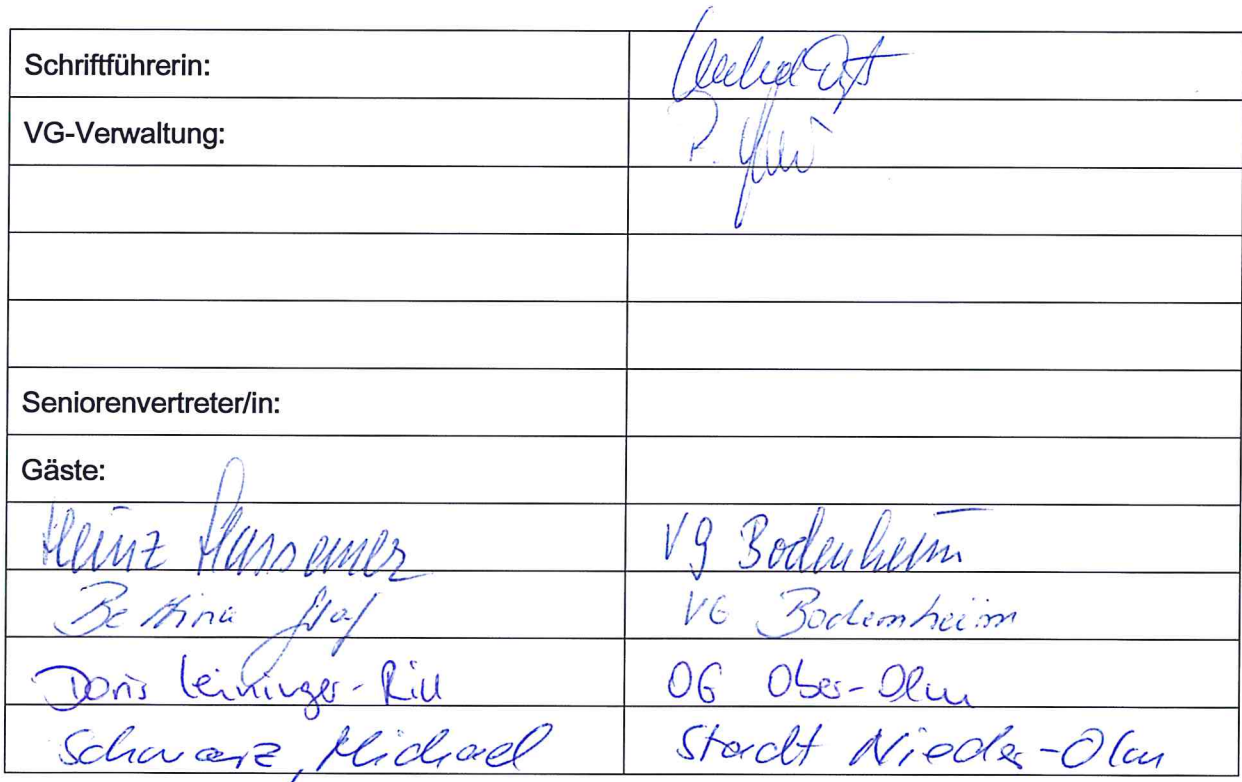 Schriftführerin:
VG-Verwaltung: P.
Seniorenvertreter/in:
Gäste:
Heinz Hassemer VG Bodenheim
Bettina Graf VG Bodemheim
Doris Leininger-Rill OG Ober-Olm
Schwarz, Michael Stadt Nieder-Olm